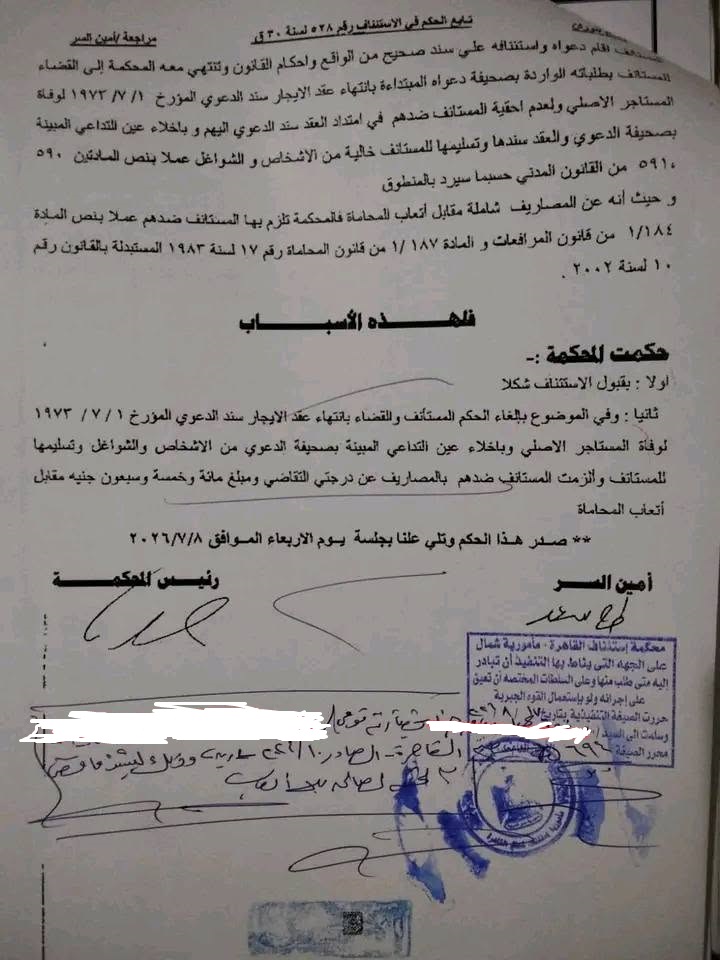 تابع الحكم في الاستئناف رقم ٥٢٨ لسنة ٣٠ ق
مراجعة /أمين السر
المستأنف اقام دعواه واستئنافه علي سند صحيح من الواقع واحكام القانون وتنتهي معه المحكمة إلى القضاء
للمستانف بطلباته الواردة بصحيفة دعواه المبتداءة بانتهاء عقد الايجار سند الدعوي المؤرخ ١ /٧ /١٩٧٣ لوفاة
المستاجر الاصلي ولعدم احقية المستانف ضدهم في امتداد العقد سند الدعوي اليهم و باخلاء عين التداعي المبينة
بصحيفة الدعوي والعقد سندها وتسليمها للمستانف خالية من الاشخاص و الشواغل عملا بنص المادتين ٥٩٠
، ٥٩١ من القانون المدني حسبما سيرد بالمنطوق
و حيث أنه عن المصاريف شاملة مقابل أتعاب المحاماة فالمحكمة تلزم بها المستانف ضدهم عملا بنص المادة
١/١٨٤ من قانون المرافعات و المادة ١٨٧ /١ من قانون المحاماة رقم ١٧ لسنة ١٩٨٣ المستبدلة بالقانون رقم
١٠ لسنة ٢٠٠٢ .
فلهـــذه الأسبـــاب
حكمت المحكمة :-
اولا : بقبول الاستئناف شكلا
ثانيا : وفي الموضوع بإلغاء الحكم المستأنف والقضاء بانتهاء عقد الايجار سند الدعوي المؤرخ ١ /٧ / ١٩٧٣
لوفاة المستاجر الاصلي وباخلاء عين التداعي المبينة بصحيفة الدعوي من الاشخاص والشواغل وتسليمها
للمستانف والزمت المستانف ضدهم بالمصاريف عن درجتي التقاضي ومبلغ مائة وخمسة وسبعون جنيه مقابل
أتعاب المحاماة
** صدر هذا الحكم وتلي علنا بجلسة يوم الاربعاء الموافق ٢٠٢٦/٧/٨
أمين الســـر
رئيس المحكمـــة
محكمة إستئناف القاهرة - مأمورية شمال
على الجهه التى يناط بها التنفيذ أن تبادر
إليه متى طلب منها وعلى السلطات المختصه أن تعين
على إجرائه ولو بإستعمال القوه الجبرية
حررت الصيغة التنفيذية بتاريخ
وسلمت الى السيد /
محرر الصيغة